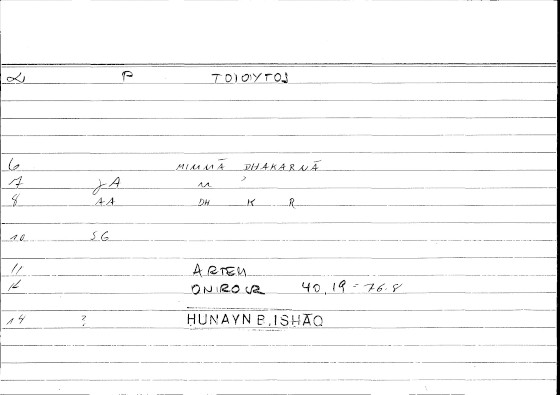 P ΤΟΙΟΥΤΟΣ
6 MIMMĀ DHAKARNĀ
7 JA M ?
8 AA DH K R
10 SG
11 ARTEM
12 ONIROCR 40,19 = 76.8
14 ? HUNAYN B. ISHĀQ